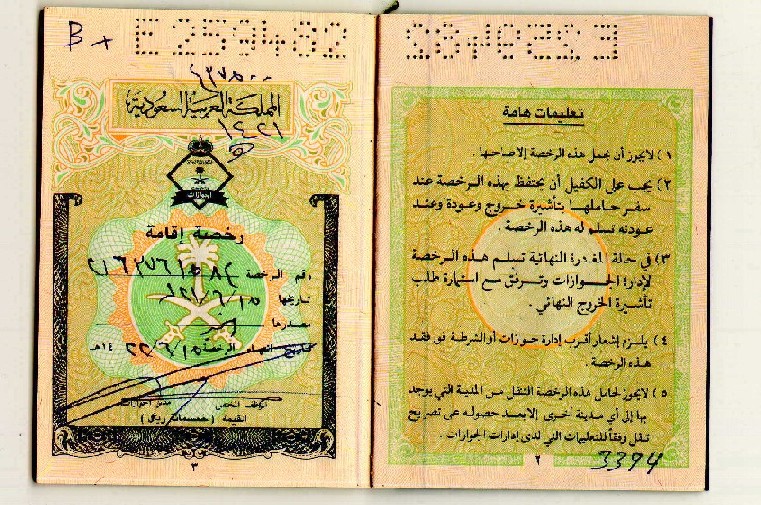 B +
E 259482
٤٣٧٥٠٠
المملكة العربية السعودية
١٤٢١
الجوازات
رخصة إقامة
رقم الرخصة
تاريخها
مصدرها
تاريخ انتهاء الرخصة ٢٢/٦/١٥ ١٤هـ
توقيع الموظف المختص
القيمة (خمسمائة ريال)
٣
تعليمات هامة
١) لايجوز أن يحمل هذه الرخصة إلا صاحبها.
٢) يجب على الكفيل أن يحتفظ بهذه الرخصة عند
سفر حاملها بتأشيرة خروج وعودة وعند
عودته تسلم له هذه الرخصة.
٣) في حالة المغادرة النهائية تسلم هذه الرخصة
لإدارة الجوازات وترفق مع استمارة طلب
تأشيرة الخروج النهائي.
٤) يلزم إشعار أقرب إدارة جوازات أو الشرطة فور فقد
هذه الرخصة.
٥) لايجوز لحامل هذه الرخصة التنقل من المدينة التي يوجد
بها إلى أي مدينة أخرى إلا بعد حصوله على تصريح
تنقل وفقاً للتعليمات التي لدى إدارات الجوازات.
٢
3394